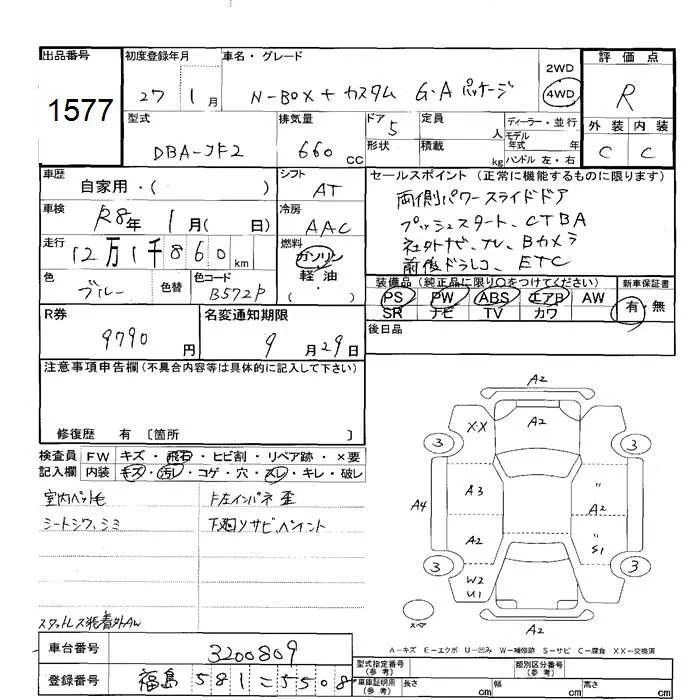 出品番号 初度登録年月 車名・グレード 2WD 評価点
1577 27 1月 N-BOX+カスタム G・Aパッケージ 4WD R
型式 排気量 ドア 5 定員 人 ディーラー・並行 外装 内装
DBA-JF2 660 CC 形状 積載 kg モデル年式 年 ハンドル 左・右 C C
車歴 自家用・( ) シフト AT セールスポイント (正常に機能するものに限ります)
両側パワースライドドア
車検 R8年 1月( 日) 冷房 AAC プッシュスタート、CTBA
社外ナビ、TV、Bカメラ
走行 12万1千860km 燃料 ガソリン 軽油 ( ・ ) 前後ドラレコ、ETC
色 ブルー 色替 色コード B572P 装備品 (純正品に限り○をつけてください) 新車保証書
PS PW ABS エアB AW 有・無
SR ナビ TV カワ
R券 9790円 名変通知期限 9月29日 後日品
注意事項申告欄(不具合内容等は具体的に記入して下さい)
修復歴 有 〔箇所 〕
検査員 FW キズ・飛石・ヒビ割・リペア跡・×要
記入欄 内装 キズ・汚レ・コゲ・穴・スレ・キレ・破レ
室内ペット毛 下左インパネ歪
シートシワ、シミ 下廻りサビペイント
スタットレス装着外AW
A2
XX A2
3 3
A3 〃
A4 A2 A2
〃 S1
3 W2 U1 3
スペア A2
A-キズ E-エクボ U-凹み W-補修跡 S-サビ C-腐食 XX-交換済
車台番号 3200809 型式指定番号(参考) 類別区分番号(参考)
登録番号 福島 581 = 5508 車庫証明用(参考) 長さ cm 幅 cm 高さ cm